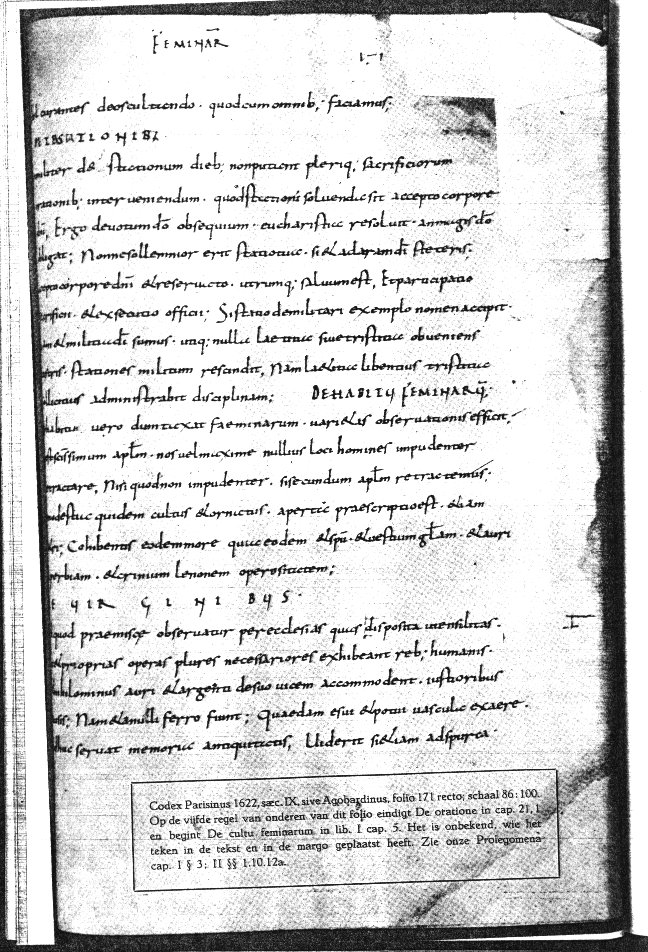 FEMINAR̄
deosculando · quodcum omnib; faciamus;
STATIONIB;
de stationum dieb; non putant pleriq; sacrificiorum
orationib; interveniendum · quod statio solvenda sit accepto corpore
Ergo devotum dō obsequium · eucharistia resolvit · an magis dō
obligat; Nonne sollemnior erit statio tua · si et ad aram dī steteris;
accepto corpore dn̄i et reservato · utrumq; salvum est, Et participatio
sacrificii · et exsecutio officii; Si statio de militari exemplo nomen accepit ·
nam et militia dī sumus · utiq; nulla laetitia sive tristitia obveniens
castris · stationes militum rescindit, Nam laetitia libentius tristitia
sollicitius administrabit disciplinam; DE HABITU FEMINARU̅;
habitu vero dumtaxat faeminarum · varietas observationis efficit,
sanctissimum apl̄m · nos vel maxime nullius loci homines impudenter
retractare, Nisi quod non impudenter · si secundum apl̄m retractemus;
de modestia quidem cultus et ornatus · aperta praescriptio est · etiam
Petri; Cohibentis eodem more quia eodem et sp̄u · et vestium gl̄am · et auri
superbiam · et crinium lenonem operositatem;
E VIRGINIBUS ·
quod praemisce observatur per ecclesias quasi disposita utensilitas ·
et proprias operas plures necessariores exhibeant reb; humanis ·
nihilominus auri et argenti de suo vicem accommodent · iustioribus
Nam et anulli ferro fiunt; Quaedam esui et potui vascula ex aere ·
adhuc servat memoria antiquitatis, Viderit si etiam ad spurca ·
Codex Parisinus 1622, sæc. IX, sive Agobardinus, folio 171 recto; schaal 86 : 100.
Op de vijfde regel van onderen van dit folio eindigt De oratione in cap. 21, 1
en begint De cultu feminarum in lib. I cap. 5. Het is onbekend, wie het
teken in de tekst en in de margo geplaatst heeft. Zie onze Prolegomena
cap. I § 3; II §§ 1.10.12a.